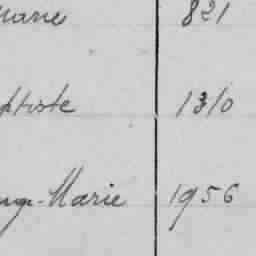 Marie 821
ptiste 1310
Marie 1956